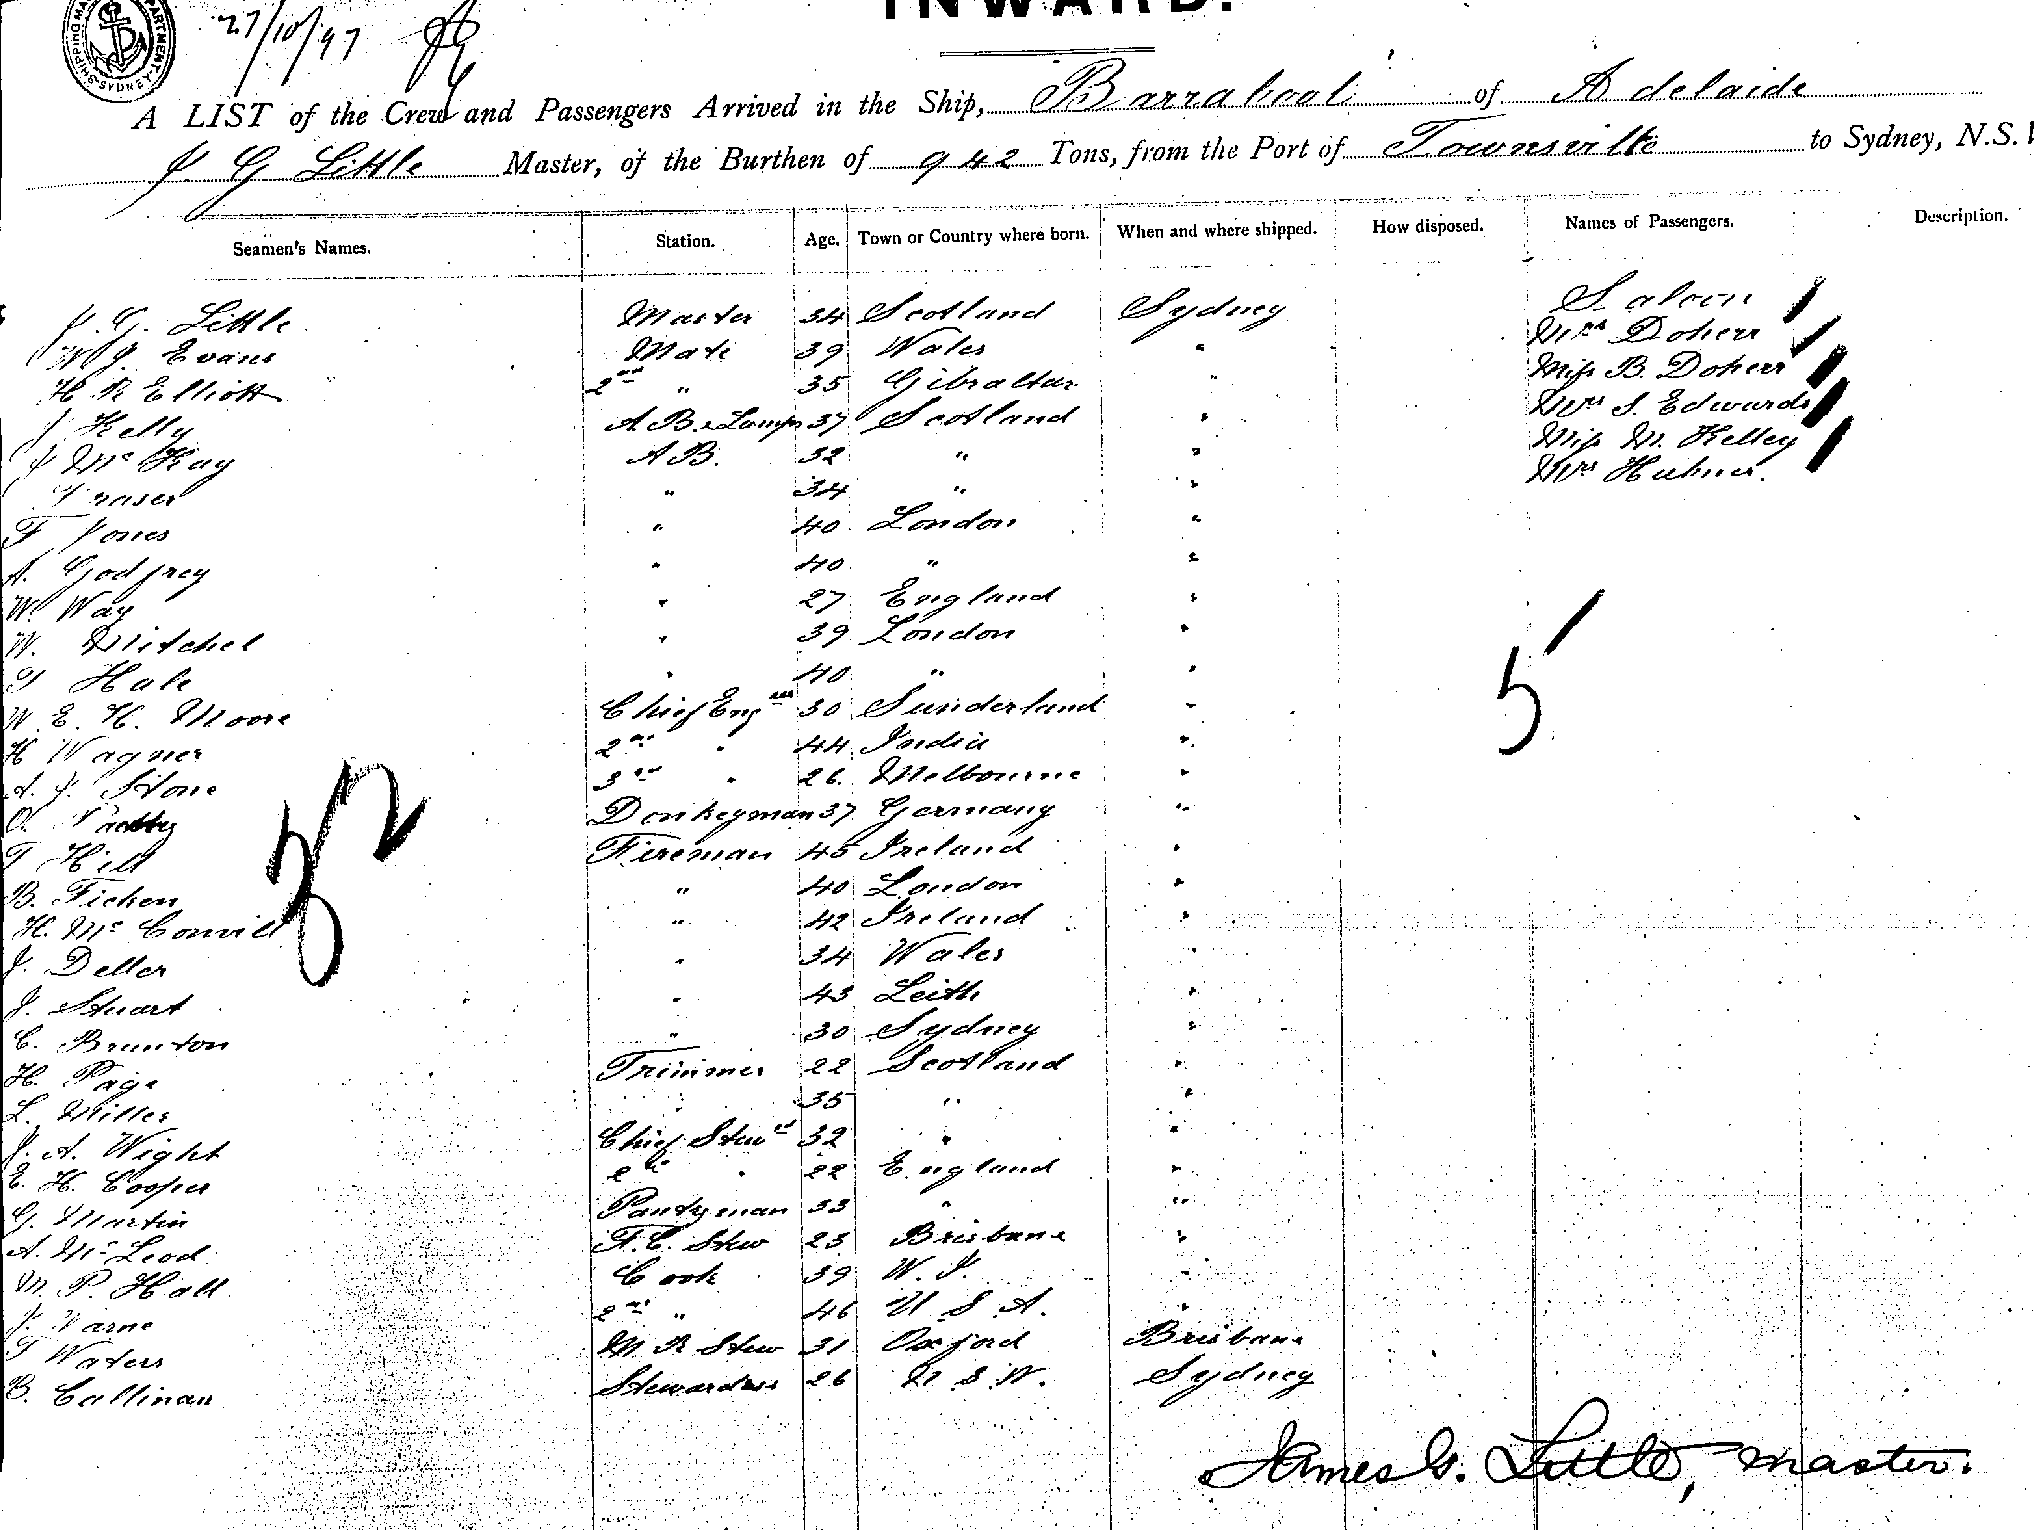 INWARD.
27/10/97
A LIST of the Crew and Passengers Arrived in the Ship, Barrabool of Adelaide
J G Little Master, of the Burthen of 942 Tons, from the Port of Townsville to Sydney, N.S.
Seamen's Names. Station. Age. Town or Country where born. When and where shipped. How disposed. Names of Passengers. Description.
J. G. Little Master 34 Scotland Sydney Saloon
W J. Evans Mate 39 Wales " Mrs Doherr
H R Elliott 2nd " 35 Gibraltar " Miss B. Doherr
J Kelly A.B. & Lamps 37 Scotland " Mrs S. Edwards
J Mc Kay A B. 32 " " Miss M. Kelley
Fraser " 34 " " Mrs
F Jones " 40 London "
A. Godfrey " 40 " "
W. Way " 27 England "
W. Mitchel " 39 London "
T Hale " 40 " "
W. E. H. Moore Chief Eng 30 Sunderland "
H Wagner 2nd " 44 India "
A. J. Stone 3rd " 26 Melbourne "
O. Donkeyman 37 Germany "
T Hill Fireman 45 Ireland "
B. Ficken " 40 London "
H. Mc Convill " 42 Ireland "
J. Deller " 34 Wales "
J. Stuart " 43 Leith "
C. Brunton " 30 Sydney "
H. Page Trimmer 22 Scotland "
L. Miller " 35 " "
J. A. Wight Chief Stewd 32 " "
E. H. Cooper 2nd " 22 England "
G. Martin Pantryman 33 " "
A. McLeod F. C. Stew 23 Brisbane "
M. P. Hall Cook 39 W. I. "
J. Varne 2nd " 46 U S A. "
T Waters M R Stew 31 Oxford Brisbane
B. Callinan Stewardess 26 N S W. Sydney
32
5
James G. Little, master.